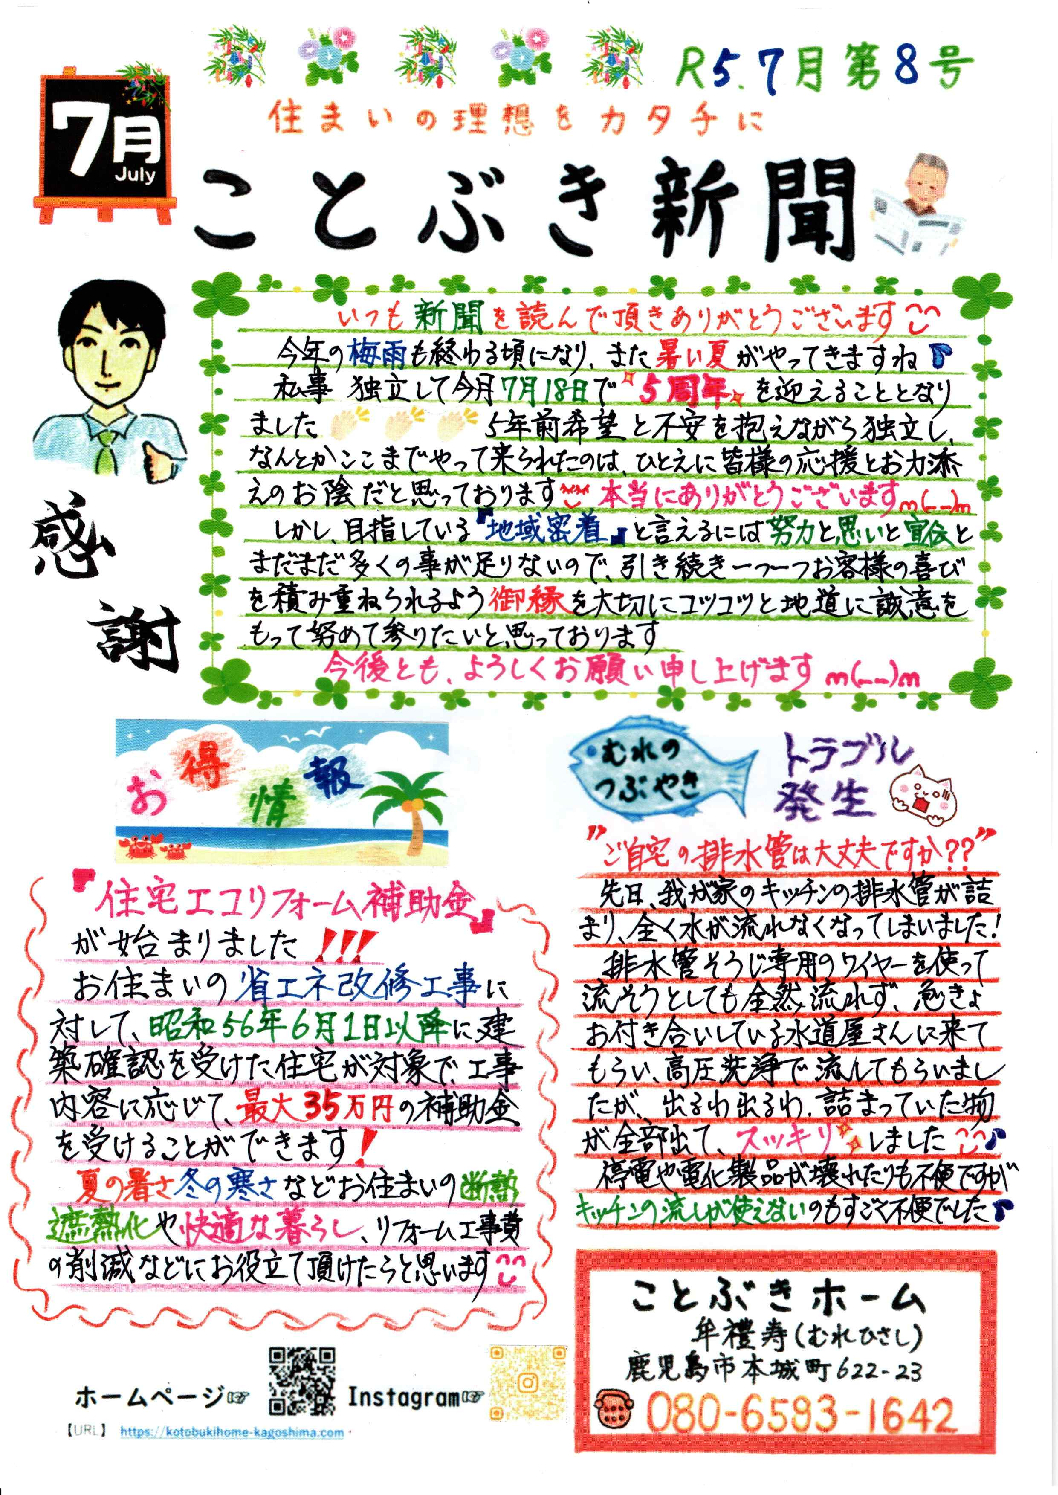 R5.7月第8号
7月
July
住まいの理想をカタチに
ことぶき新聞
いつも新聞を読んで頂きありがとうございます
今年の梅雨も終わる頃になり、また暑い夏がやってきますね
私事 独立して今月7月18日で5周年を迎えることとなり
ました 5年前希望と不安を抱えながら独立し、
なんとかここまでやって来られたのは、ひとえに皆様の応援とお力添
えのお陰だと思っております 本当にありがとうございますm(__)m
しかし、目指している『地域密着』と言えるには努力と思いと宣伝と
まだまだ多くの事が足りないので、引き続き一つ一つお客様の喜び
を積み重ねられるよう御縁を大切にコツコツと地道に誠意を
もって努めて参りたいと思っております
今後とも、よろしくお願い申し上げますm(__)m
感謝
お得情報
『住宅エコリフォーム補助金』
が始まりました!!!
お住まいの省エネ改修工事に
対して、昭和56年6月1日以降に建
築確認を受けた住宅が対象で工事
内容に応じて、最大35万円の補助金
を受けることができます!
夏の暑さ冬の寒さなどお住まいの断熱
遮熱化や快適な暮らし、リフォーム工事費
の削減などにお役立て頂けたらと思います
むれの
つぶやき
トラブル
発生
"ご自宅の排水管は大丈夫ですか??"
先日、我が家のキッチンの排水管が詰
まり、全く水が流れなくなってしまいました!
排水管そうじ専用のワイヤーを使って
流そうとしても全然流れず、急きょ
お付き合いしている水道屋さんに来て
もらい、高圧洗浄で流してもらいまし
たが、出るわ出るわ、詰まっていた物
が全部出て、スッキリしました
停電や電化製品が壊れたりも不便ですが
キッチンの流しが使えないのもすごく不便でした
ことぶきホーム
牟禮寿(むれひさし)
鹿児島市本城町622-23
080-6593-1642
ホームページ☞
Instagram☞
【URL】 https://kotobukihome-kagoshima.com